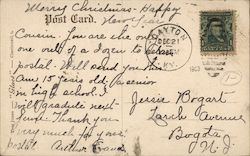 Merry Christmas - Happy
New Year
Post Card.
Cousin - You are the only
one out of a dozen to
postal. Will send you his
Am 15 years old, a senior
in high school. I
will graduate next
June. Thank you
very much for yours.
Arthur
DAYTON
DEC 21
KY.
Jessie Bogart
Larch Avenue
Bogota
N. J.